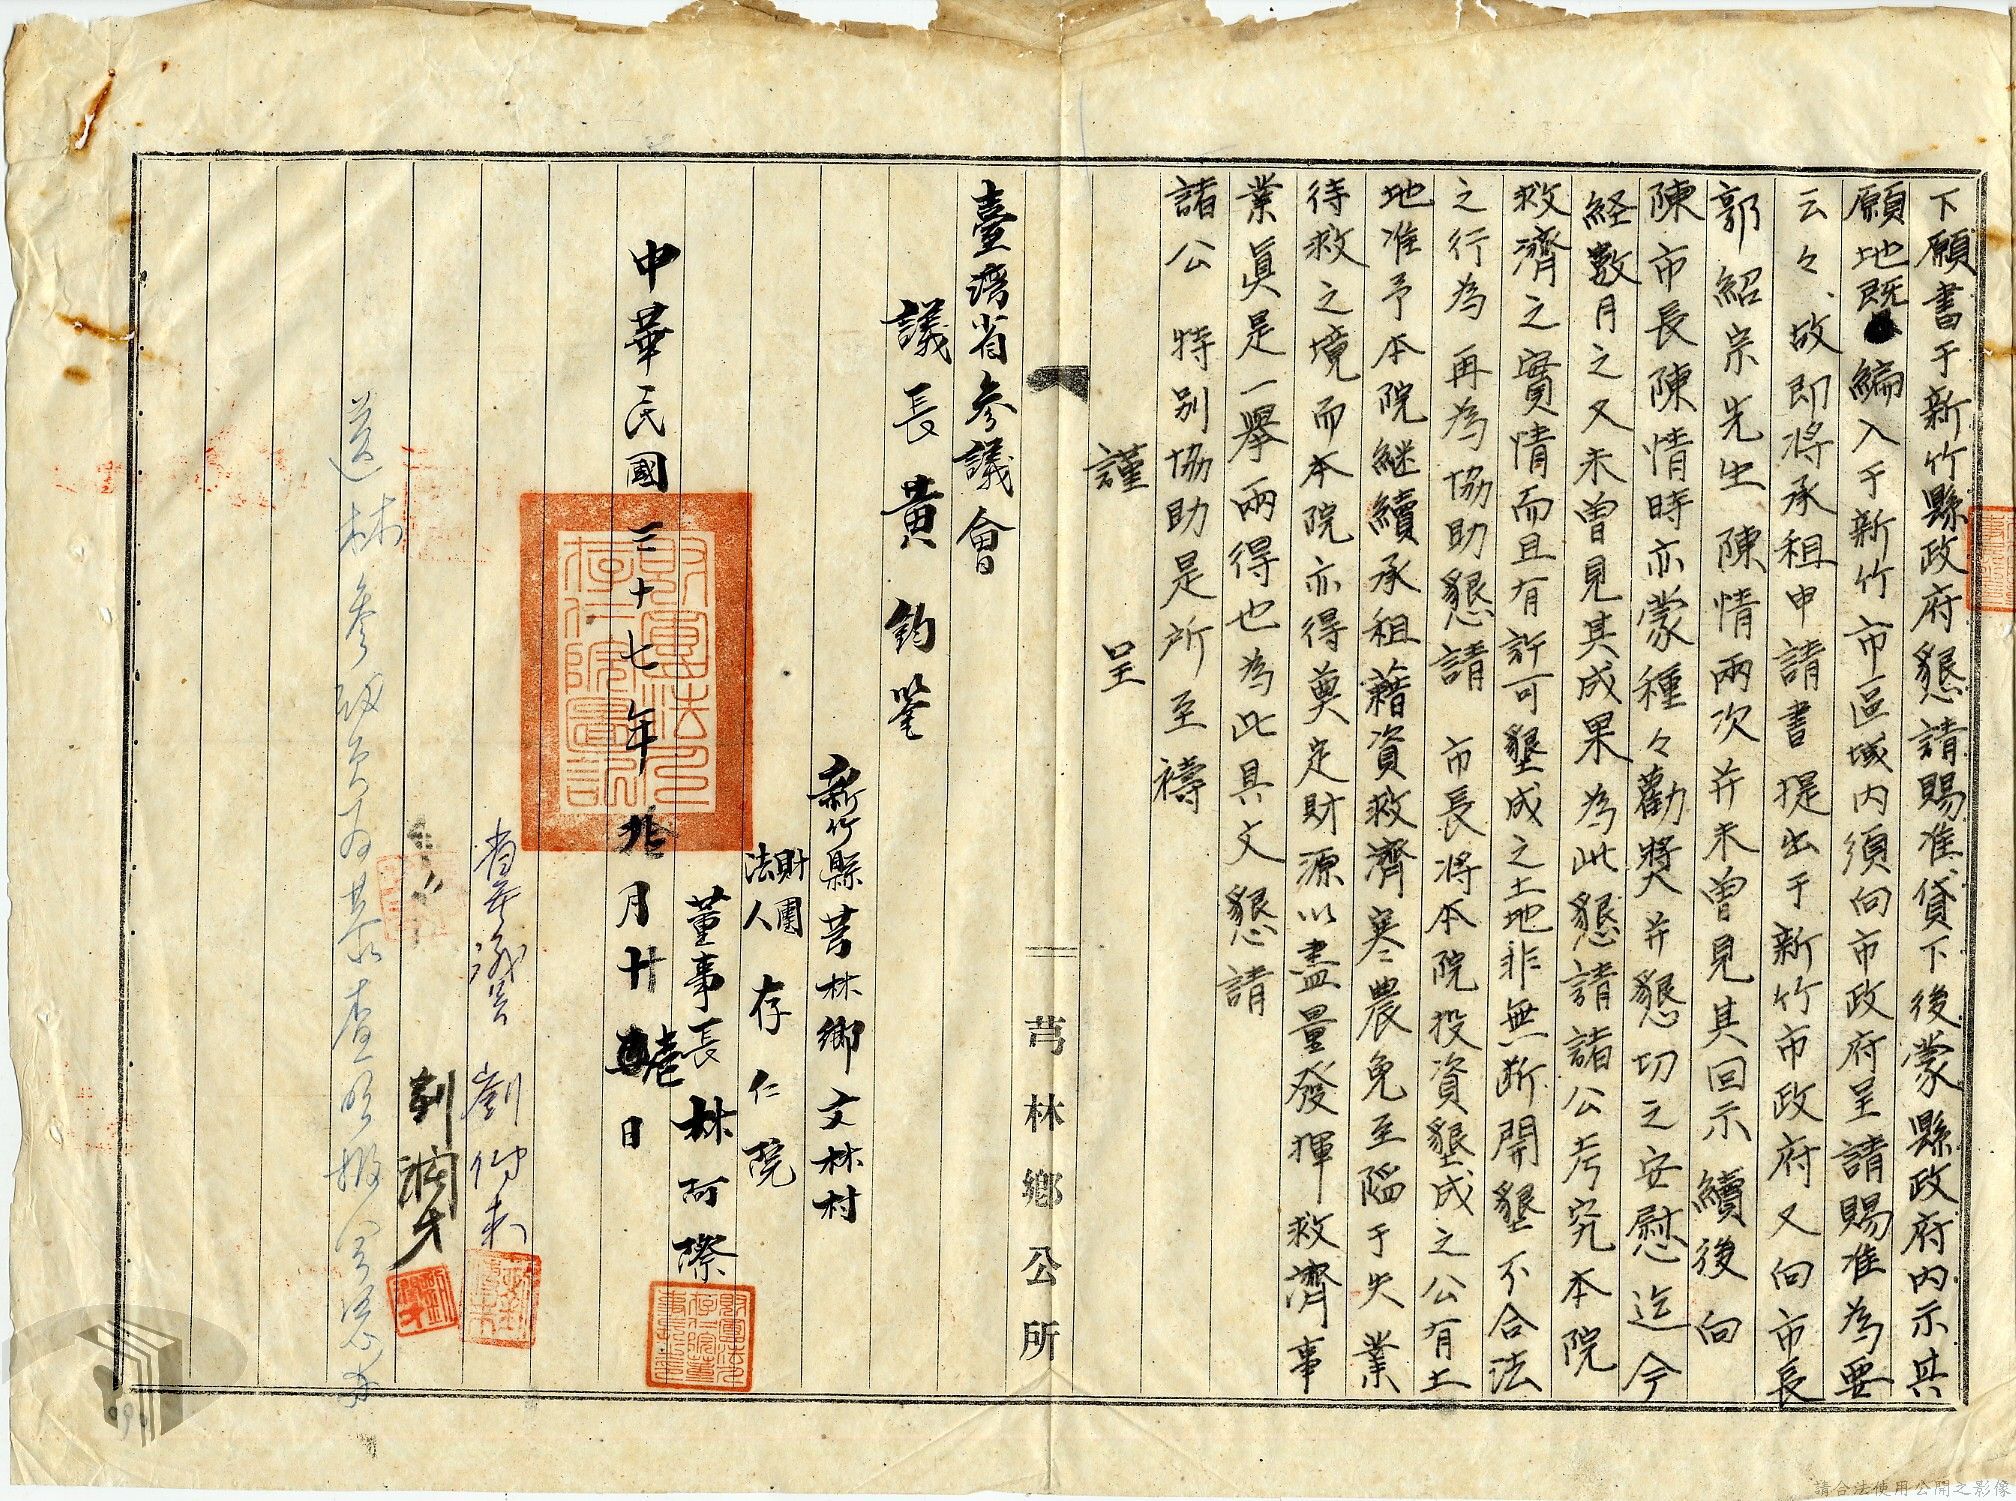 下願書于新竹縣政府懇請賜准貸下後蒙縣政府内示其
願地既編入于新竹市區域内須向市政府呈請賜准為要
云々、故即將承租申請書提出于新竹市政府又向市長
郭紹宗先生 陳情兩次并未曽見其回示 續後向
陳市長陳情時亦蒙種々勸奬并懇切之安慰迄今
経數月之又未曽見其成果為此懇請諸公考究本院
救濟之實情而且有許可墾成之土地非無断開墾不合法
之行為 再為協助懇請 市長將本院投資墾成之公有土
地准予本院継續承租藉資救濟寒農免至陥于失業
待救之境而本院亦得奠定財源以盡量發揮救濟事
業眞是一舉兩得也為此具文 懇請
諸公 特別協助是所至禱
謹 呈
芎林鄉公所
臺湾省参議會
議長 黄 鈞鑒
新竹縣芎林鄉文林村
財團法人 存仁院
董事長 林阿際
中華民國三十七年 月廿陸日
省参議員 劉傳来
劉濶才